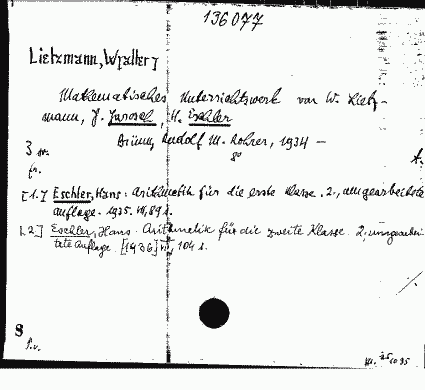 136077
Lietzmann, W[alter]
Mathematisches Unterrichtswerk von W. Lietz-
mann, J. Jarosch, H. Eschler
Brünn, Rudolf M. Rohrer, 1934 -
8°
3
[1.] Eschler, Hans: Arithmetik für die erste Klasse. 2., umgearbeitete
Auflage. 1935. 89 s.
[2.] Eschler, Hans: Arithmetik für die zweite Klasse. 2., umgearbei
tete Auflage. [1936] 104 s.
8